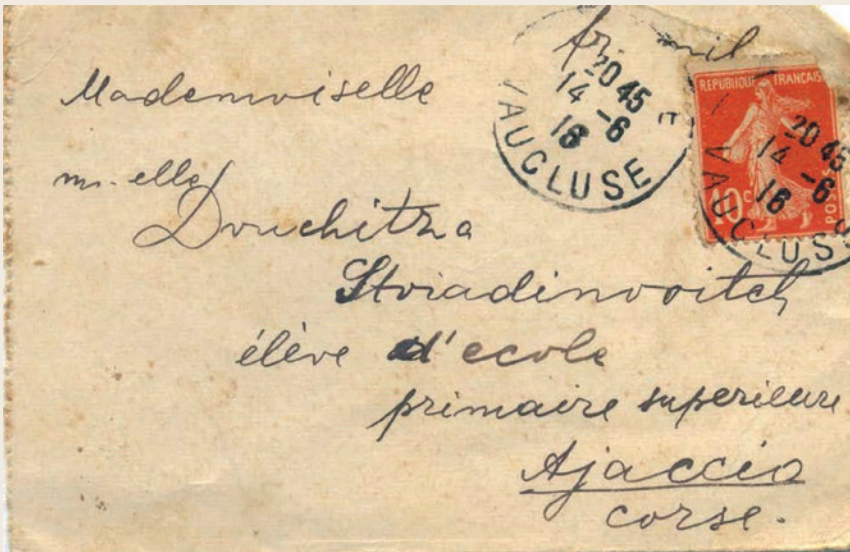 Mademoiselle
m-elle
Douchitza
Stoiadinovitch
élève d'ecole
primaire superieure
Ajaccio
corse.
20 45
14 -6
16
VAUCLUSE
REPUBLIQUE FRANÇAISE
10c
POSTES
20 45
14 -6
16
VAUCLUSE